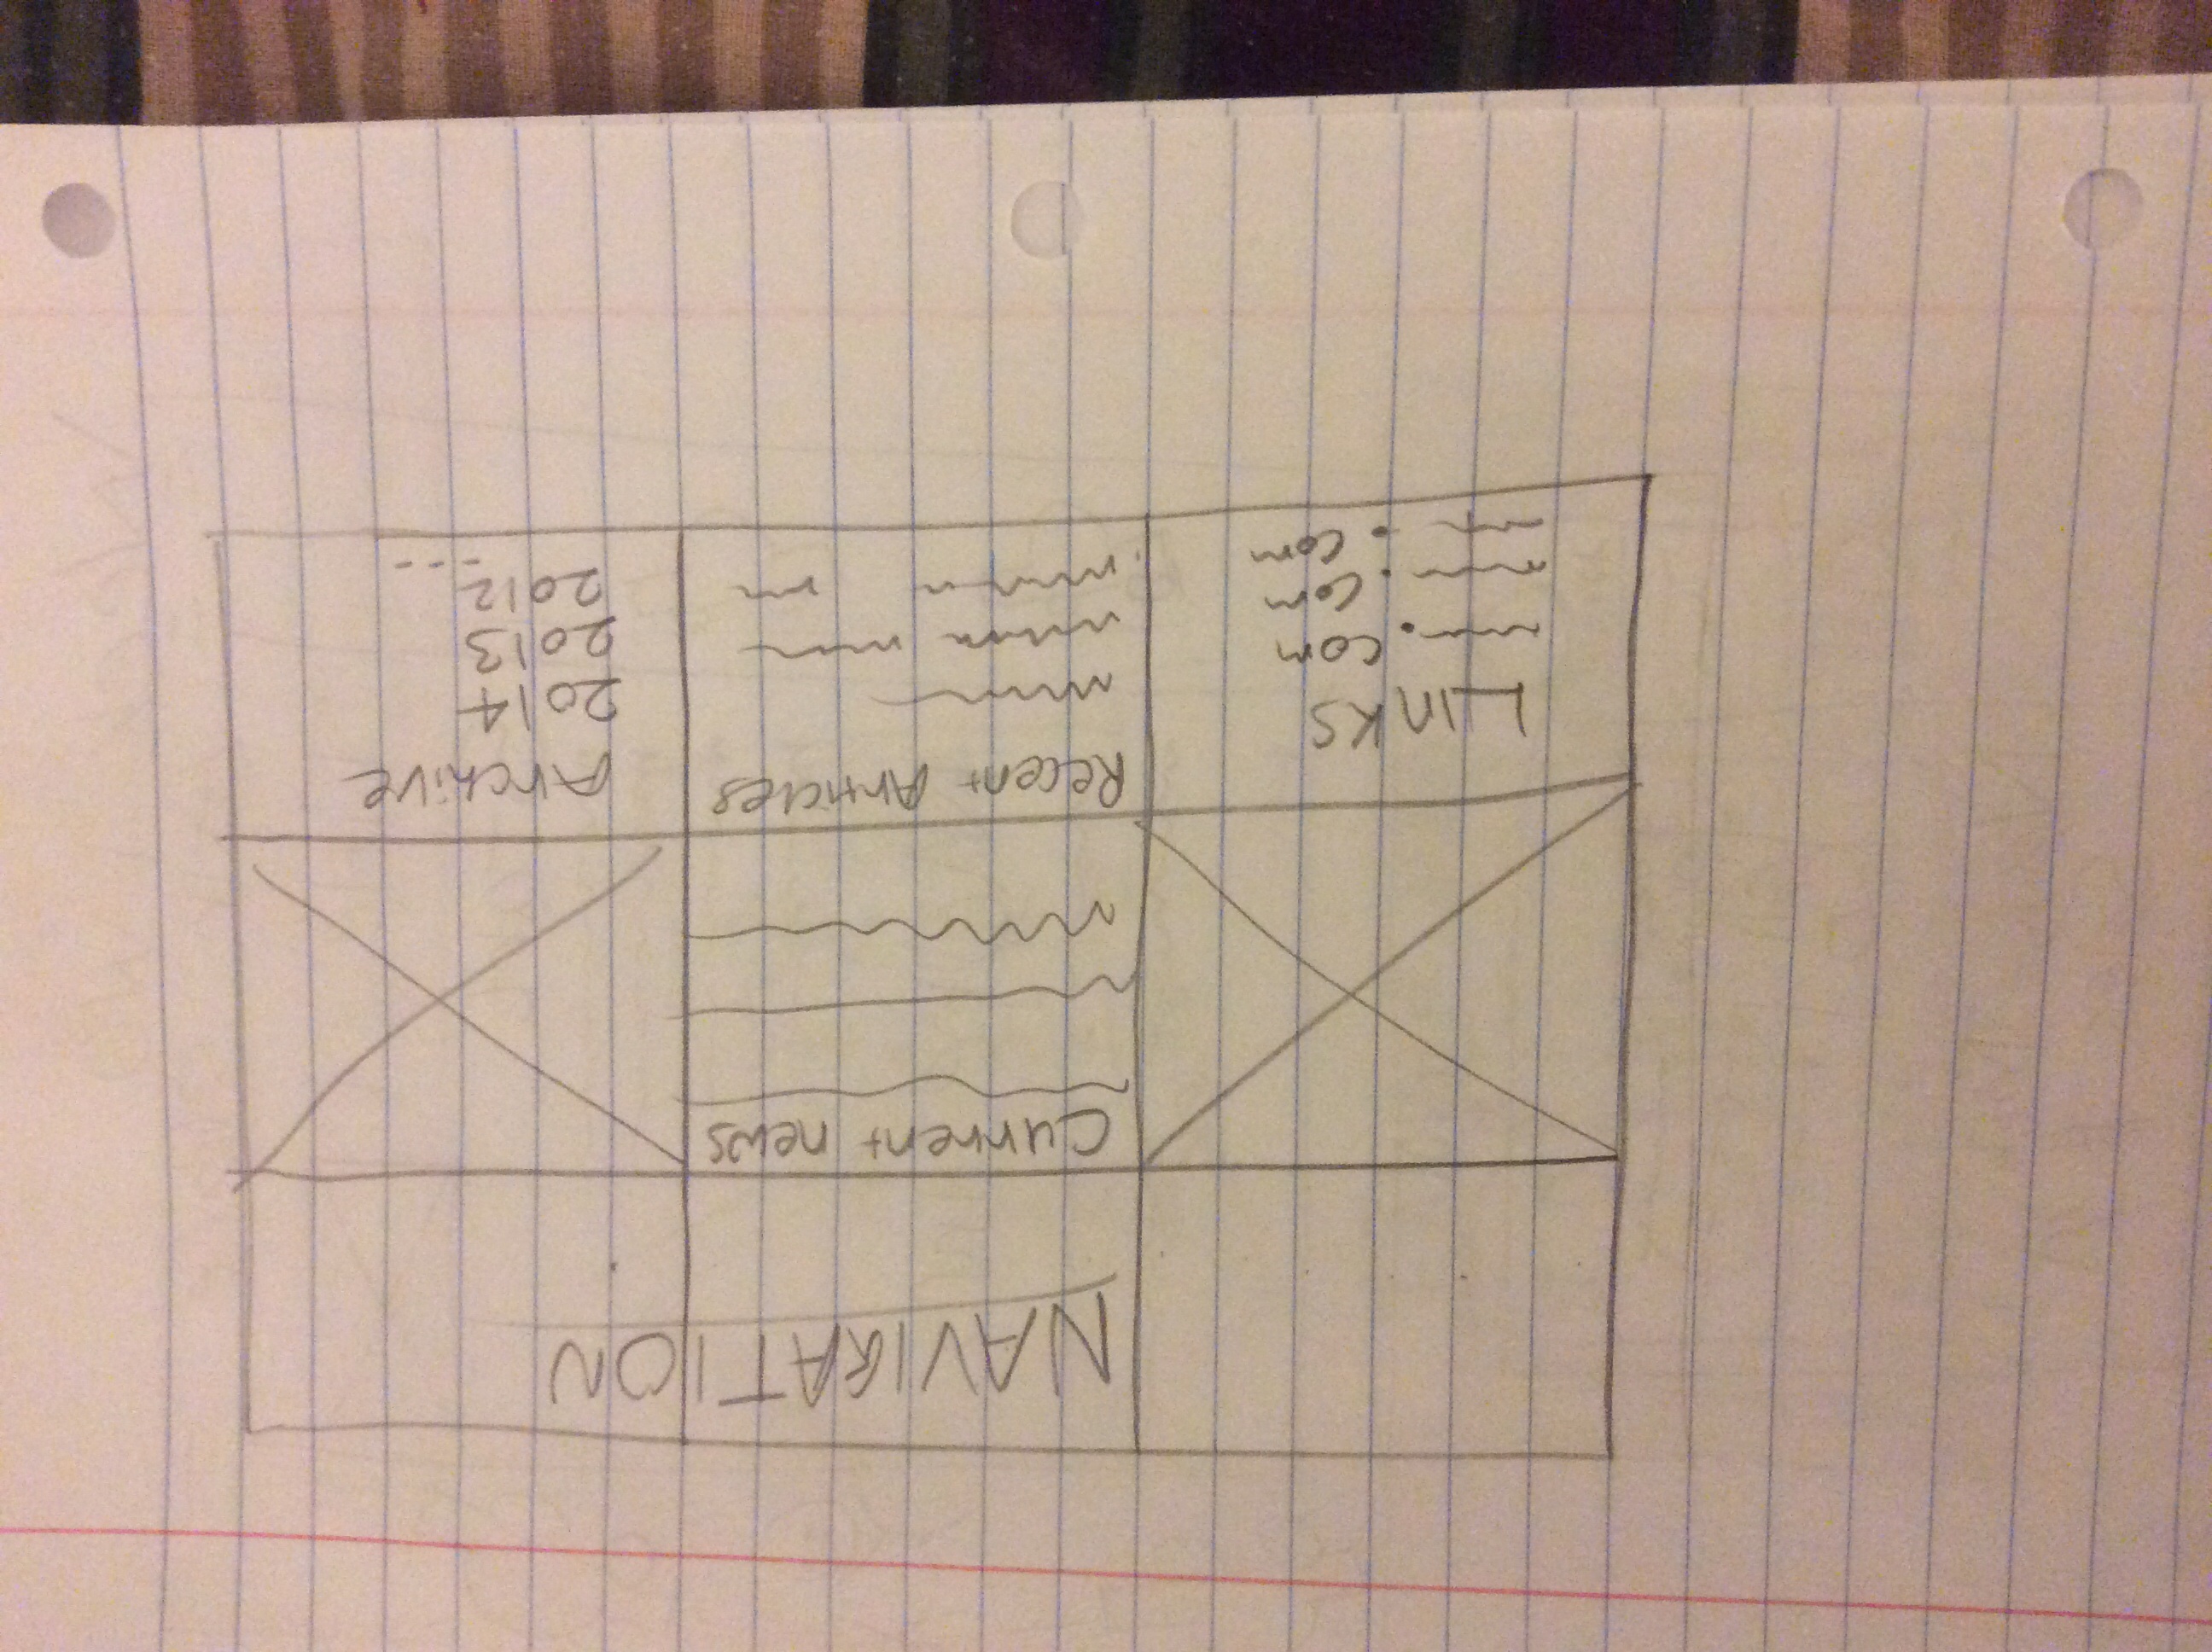 NAVIGATION
Current news
LINKS
.com
.com
.com
Recent Articles
Archive
2014
2013
2012...